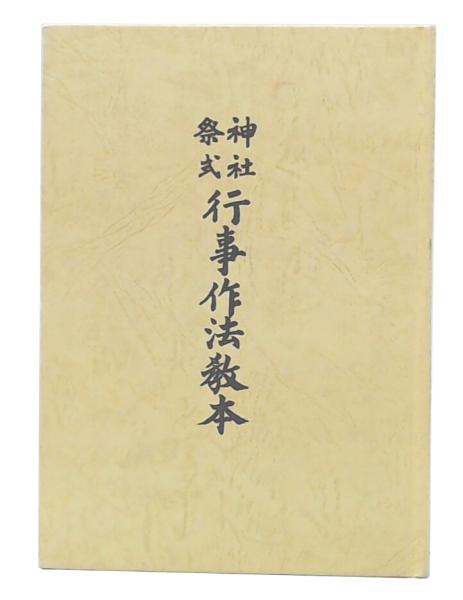 神社
祭式
行事作法教本